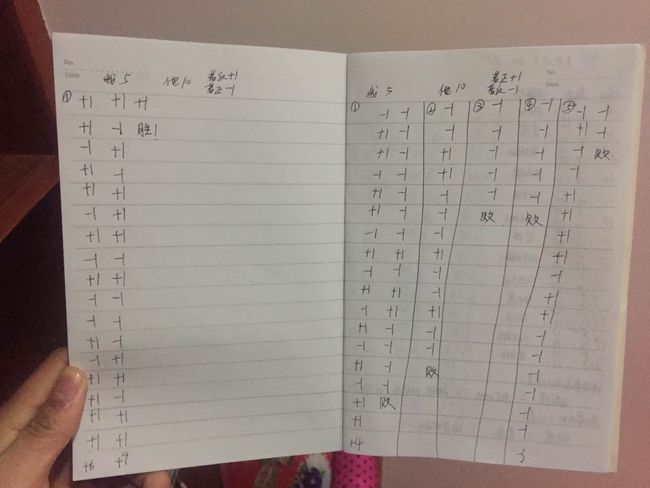 No.
Date
我5 他10 若反+1
若正-1
① +1 +1 +1
+1 -1 胜!
-1 +1
+1 -1
+1 +1
-1 +1
+1 +1
-1 -1
+1 +1
-1 -1
-1 -1
+1 -1
-1 +1
+1 +1
+1 -1
+1 +1
+1 +1
+6 +9
No.
Date
我5 他10 若正+1
若反-1
① -1 -1 ② -1 ③ -1 ④ -1 ⑤ -1 -1
+1 -1 -1 -1 -1 +1 -1
+1 -1 +1 -1 -1 -1 败
-1 -1 +1 -1 -1 -1
+1 -1 -1 -1 -1 +1
+1 -1 -1 败 败 +1
-1 -1 -1 +1
+1 +1 +1 +1
-1 -1 -1 -1
+1 +1 -1 +1
-1 +1 +1 +1
+1 -1 -1 -1
-1 -1 -1 -1
+1 -1 败 -1
-1 -1 -1
+1 败 -1
+1 -1
+4 3